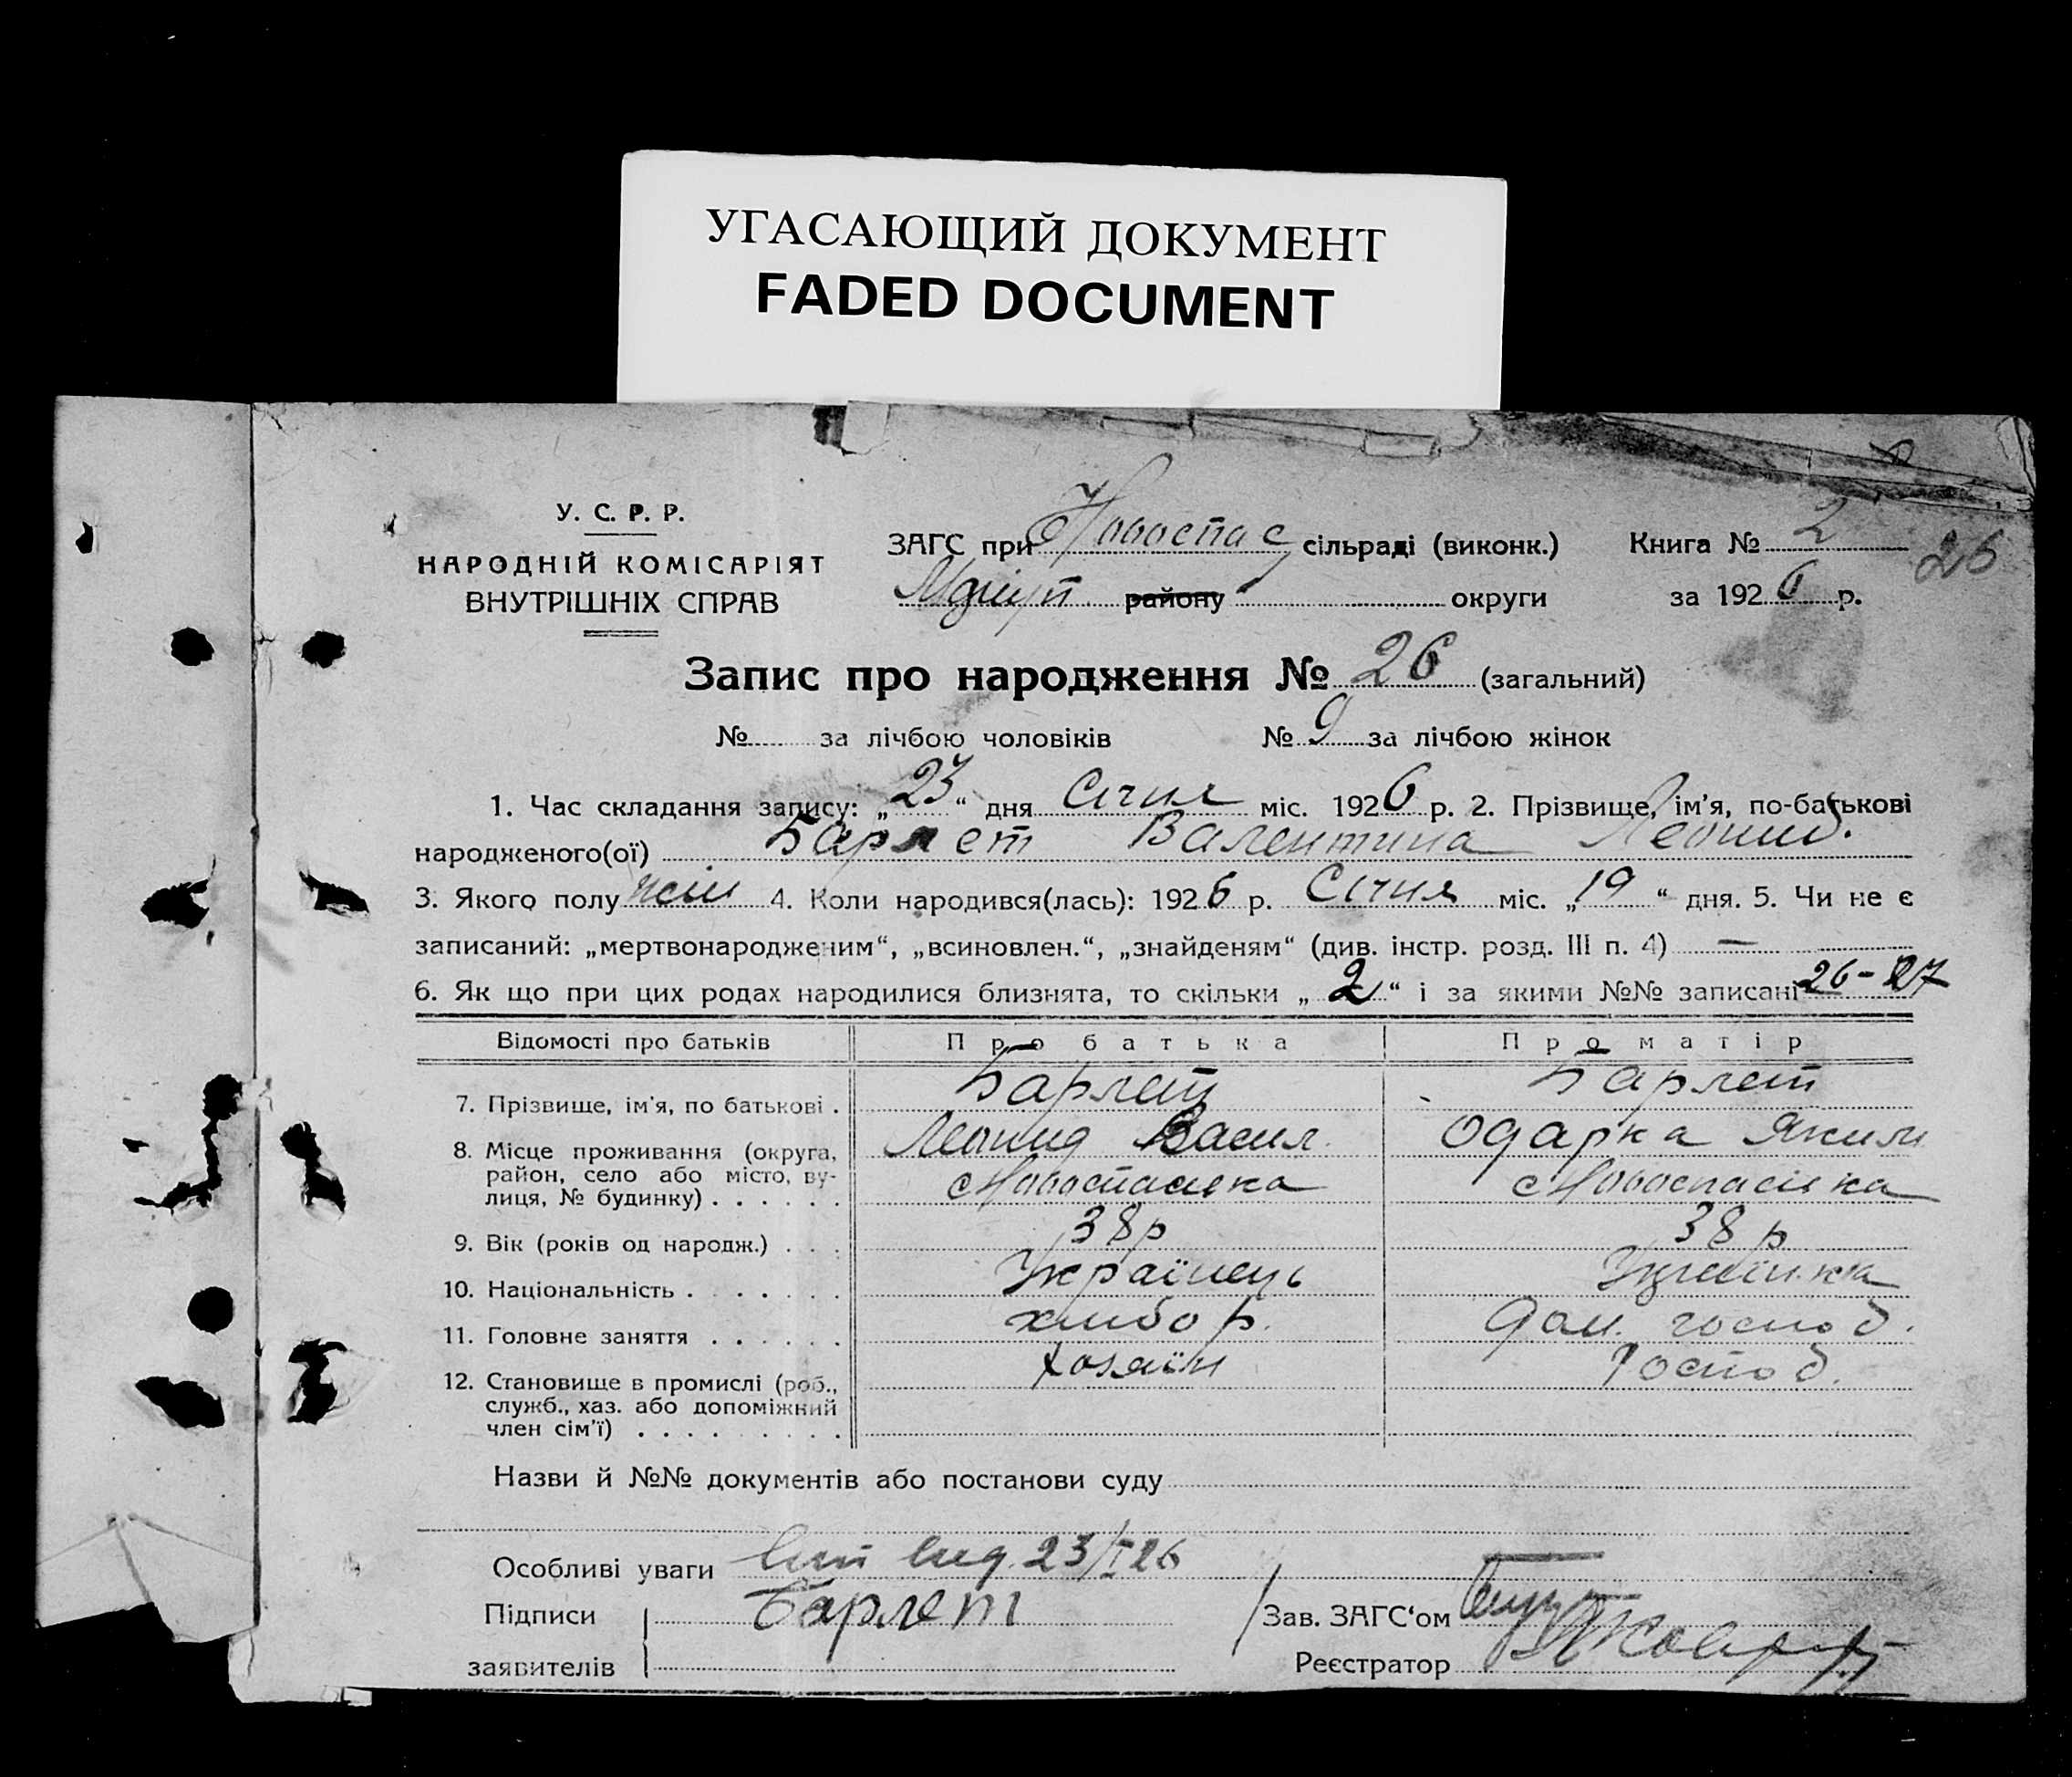 УГАСАЮЩИЙ ДОКУМЕНТ
FADED DOCUMENT
У. С. Р. Р.
НАРОДНІЙ КОМІСАРІЯТ
ВНУТРІШНІХ СПРАВ
ЗАГС при Новоспас сільраді (виконк.)
Маріуп району округи
Книга № 2
26
за 1926 р.
Запис про народження № 26 (загальний)
№ за лічбою чоловіків № 9 за лічбою жінок
1. Час складання запису: „23“ дня Січня міс. 1926 р. 2. Прізвище, ім’я, по-батькові
народженого(ої) Барлет Валентина Леонид.
3. Якого полу жін 4. Коли народився(лась): 1926 р. Січня міс. „19“ дня. 5. Чи не є
записаний: „мертвонародженим“, „всиновлен.“, „знайденям“ (див. інстр. розд. III п. 4) —
6. Як що при цих родах народилися близнята, то скільки „2“ і за якими №№ записані 26-27
Відомості про батьків Про батька Про матір
7. Прізвище, ім’я, по батькові . Барлет Барлет
Леонид Васил. Одарка Яким
8. Місце проживання (округа,
район, село або місто, ву-
лиця, № будинку) . . . . . . с Новоспасівка с Новоспасівка
9. Вік (років од народж.) . . . 38 р 38 р
10. Національність . . . . . . Українець Українка
11. Головне заняття . . . . . . хлибор. Дом. господ.
12. Становище в промислі (роб.,
служб., хаз. або допоміжний
член сім’ї) . . . . . . . . . Хозяїн Господ.
Назви й №№ документів або постанови суду
Особливі уваги 23/I 26
Підписи Барлет
заявителів
Зав. ЗАГС‘ом
Реєстратор